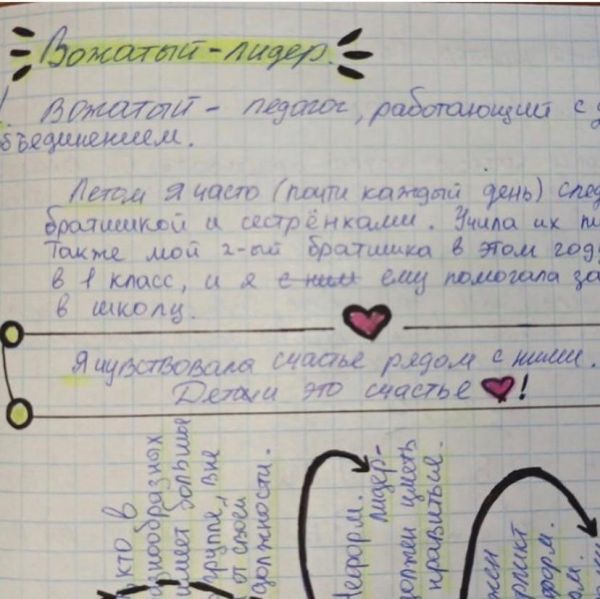 Вожатый-лидер.
! Вожатый - педагог, работающий с д
бъединением.
Летом я часто (почти каждый день) след
братишкой и сестрёнками. Учила их пи
Также мой 2-ой братишка в этом год
в 1 класс, и я с ним ему помогала за
в школу.
Я чувствовала счастье рядом с ними.
Деточки это счастье !
кто в
азнообразных
имеет больший
группе, вне
от своей
должности.
Неформ.
лидер-
должен уметь
нравиться.
жен
форм.